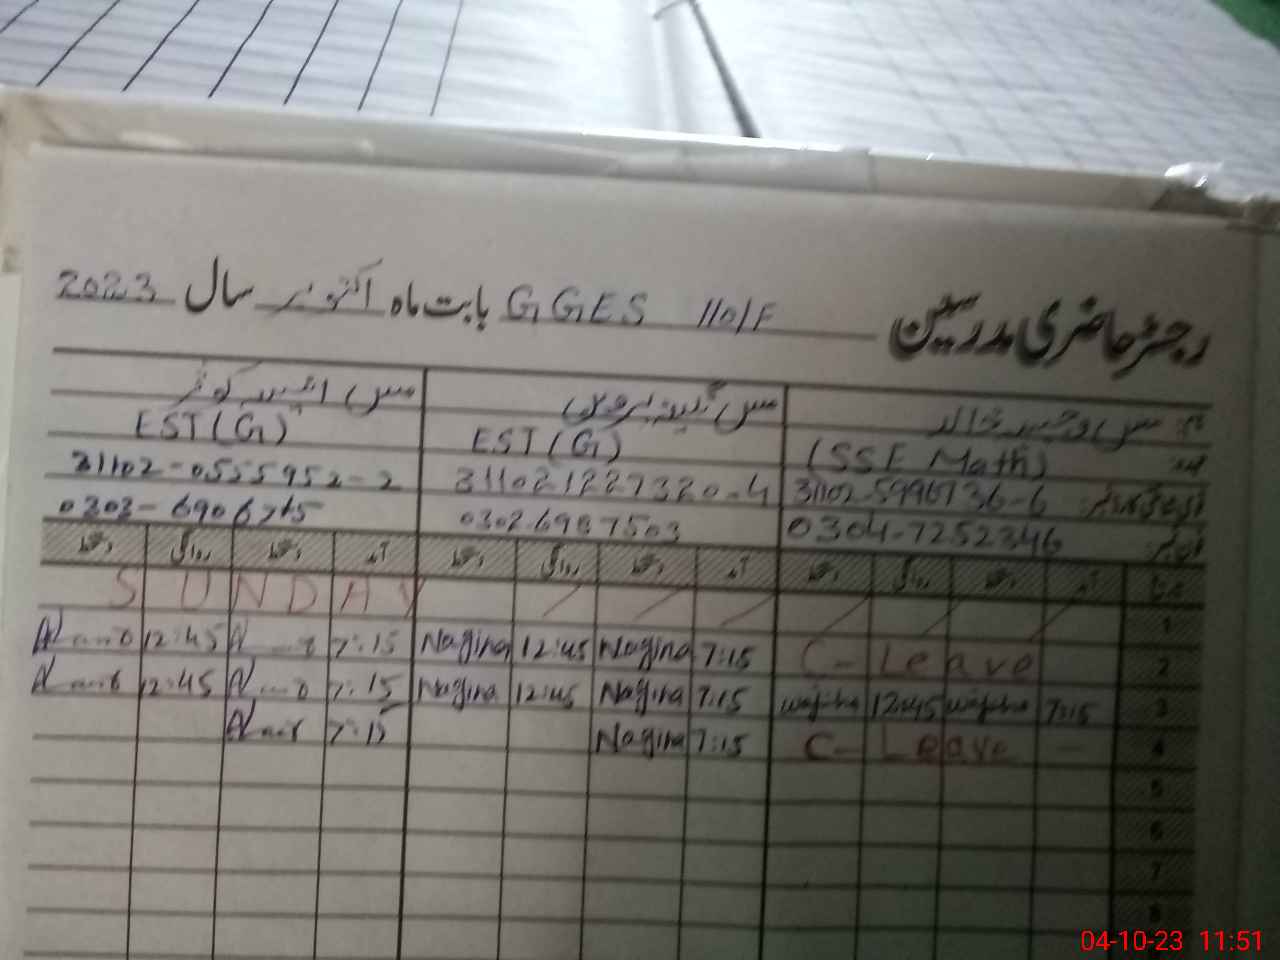 رجسٹر حاضری مدرسین GGES 110/F بابت ماہ اکتوبر سال 2023
مس وجیہہ خالد مس نگینہ پروین مس کوثر
(SSE Math) EST(G) EST(G)
31102-5996736-6 311021227320-4 31102-0555952-2
0304-7252346 0302-6987503 0303-6906765
آمد دستخط روانگی دستخط آمد دستخط روانگی دستخط آمد دستخط روانگی دستخط
1 SUNDAY
2 C- Leave 7:15 Nagina 12:45 Nagina 7:15 12:45
3 7:15 wajiha 12:45 wajiha 7:15 Nagina 12:45 Nagina 7:15 12:45
4 C- Leave 7:15 Nagina 7:15
5
6
7
8
04-10-23 11:51